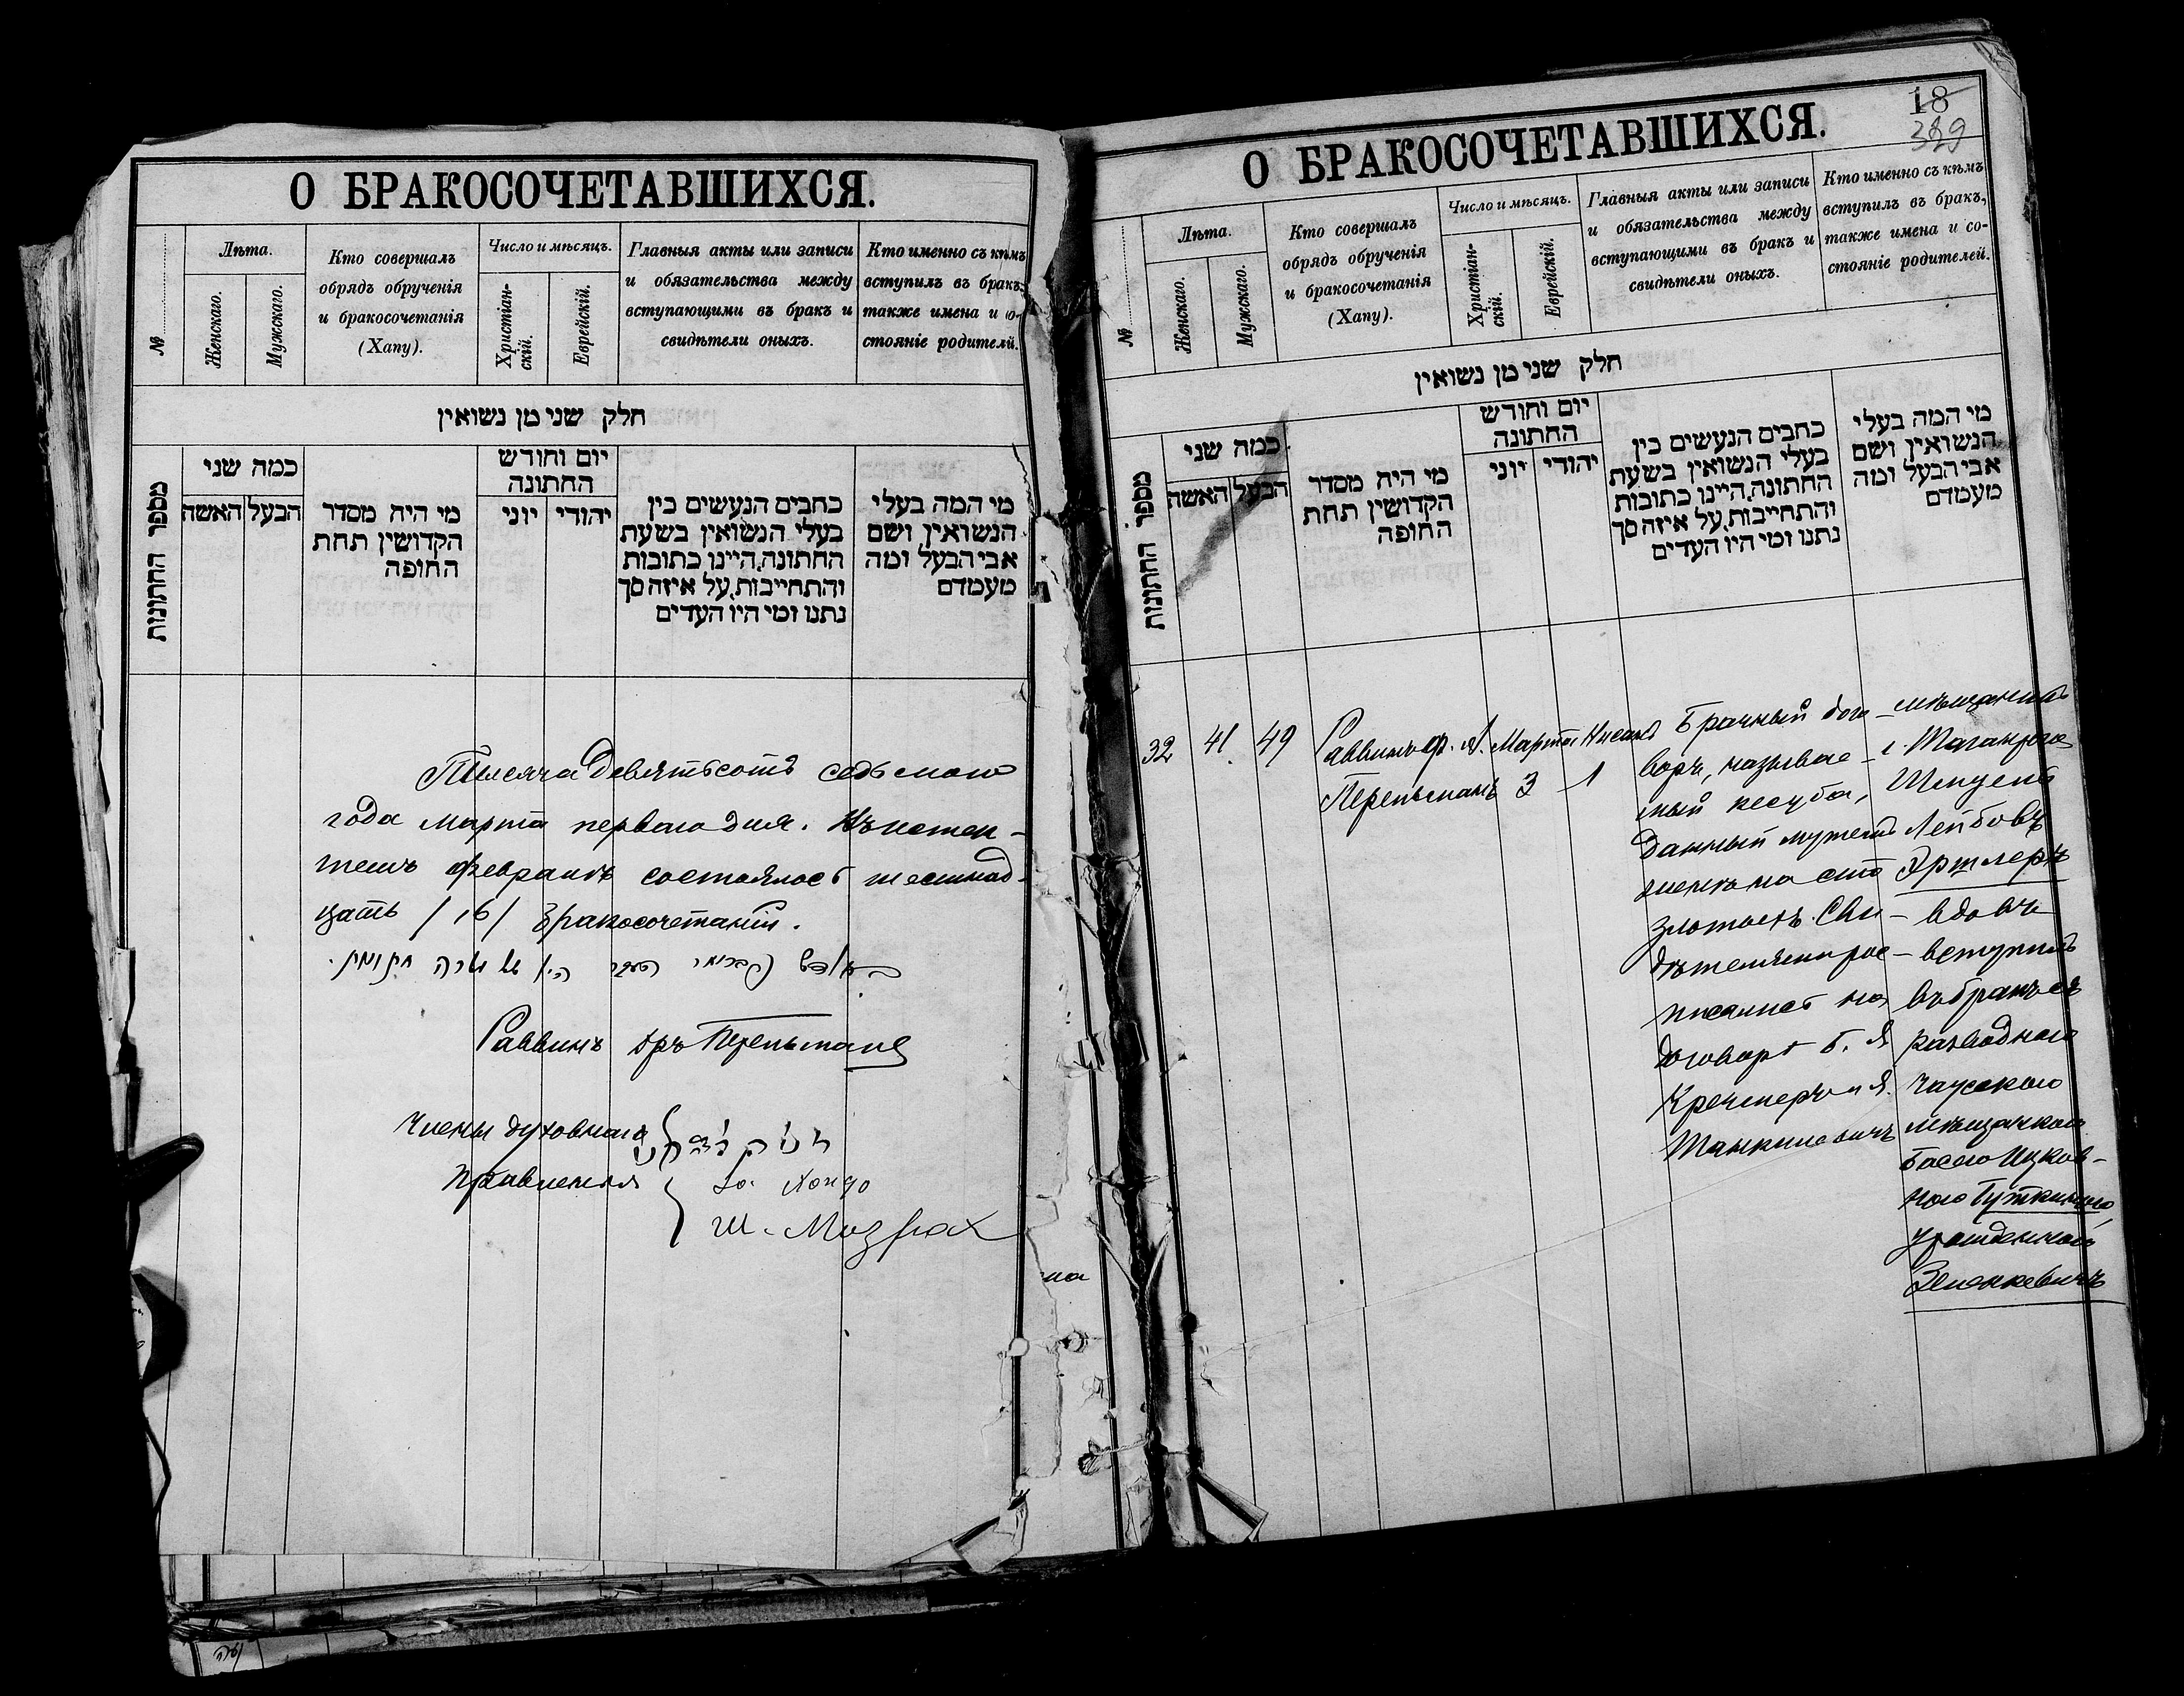 О БРАКОСОЧЕТАВШИХСЯ.
№
Лѣта.
Женскаго.
Мужскаго.
Кто совершалъ
обрядъ обрученія
и бракосочетанія
(Хапу).
Число и мѣсяцъ.
Христіан-
скій.
Еврейскій.
Главныя акты или записи
и обязательства между
вступающими въ бракъ и
свидѣтели оныхъ.
Кто именно съ кѣмъ
вступилъ въ бракъ,
также имена и со-
стояніе родителй.
חלק שני מן נשואין
מספר החתונות
כמה שני
הבעל
האשה
מי היה מסדר
הקדושין תחת
החופה
יום וחודש
החתונה
יהודי
יוני
כתבים הנעשים בין
בעלי הנשואין בשעת
החתונה. היינו כתובות
והתחייבות. על איזה סך
נתנו ומי היו העדים
מי המה בעלי
הנשואין ושם
אבי הבעל ומה
מעמדם
Тысяча Девятьсотъ седьмого
года Марта перваго дня. Въ истек-
шемъ Февралѣ состоялось шестнад-
цать /16/ бракосочетаній.
Раввинъ дръ Перельманъ
Члены духовнаго
правленія
Ш. Мизрах
О БРАКОСОЧЕТАВШИХСЯ.
18
329
№
Лѣта.
Женскаго.
Мужскаго.
Кто совершалъ
обрядъ обрученія
и бракосочетанія
(Хапу).
Число и мѣсяцъ.
Христіан-
скій.
Еврейскій.
Главныя акты или записи
и обязательства между
вступающими въ бракъ и
свидѣтели оныхъ.
Кто именно съ кѣмъ
вступилъ въ бракъ,
также имена и со-
стояніе родителей.
חלק שני מן נשואין
מספר החתונות
כמה שני
הבעל
האשה
מי היה מסדר
הקדושין תחת
החופה
יום וחודש
החתונה
יהודי
יוני
כתבים הנעשים בין
בעלי הנשואין בשעת
החתונה. היינו כתובות
והתחייבות. על איזה סך
נתנו ומי היו העדים
מי המה בעלי
הנשואין ושם
אבי הבעל ומה
מעמדם
32
41
49
Раввинъ
Перельманъ
Марта
3
Нисана
1
Брачный дого-
воръ, называе-
мый кесуба,
данный мужемъ
женѣ на сто
злотыхъ. Сви-
дѣтелями рос-
писались на
договорѣ Б. Я
Кремеръ и Я.
Танкилевичъ
мѣщанинъ
г. Таганрога
Шмуель
Лейбовъ
Эршлеръ
вдовъ
вступилъ
въ бракъ съ
разводною
Чаусскою
мѣщанкою
Басею Ицков-
ною Гуткиною,
урожденною
Зеленкевичъ